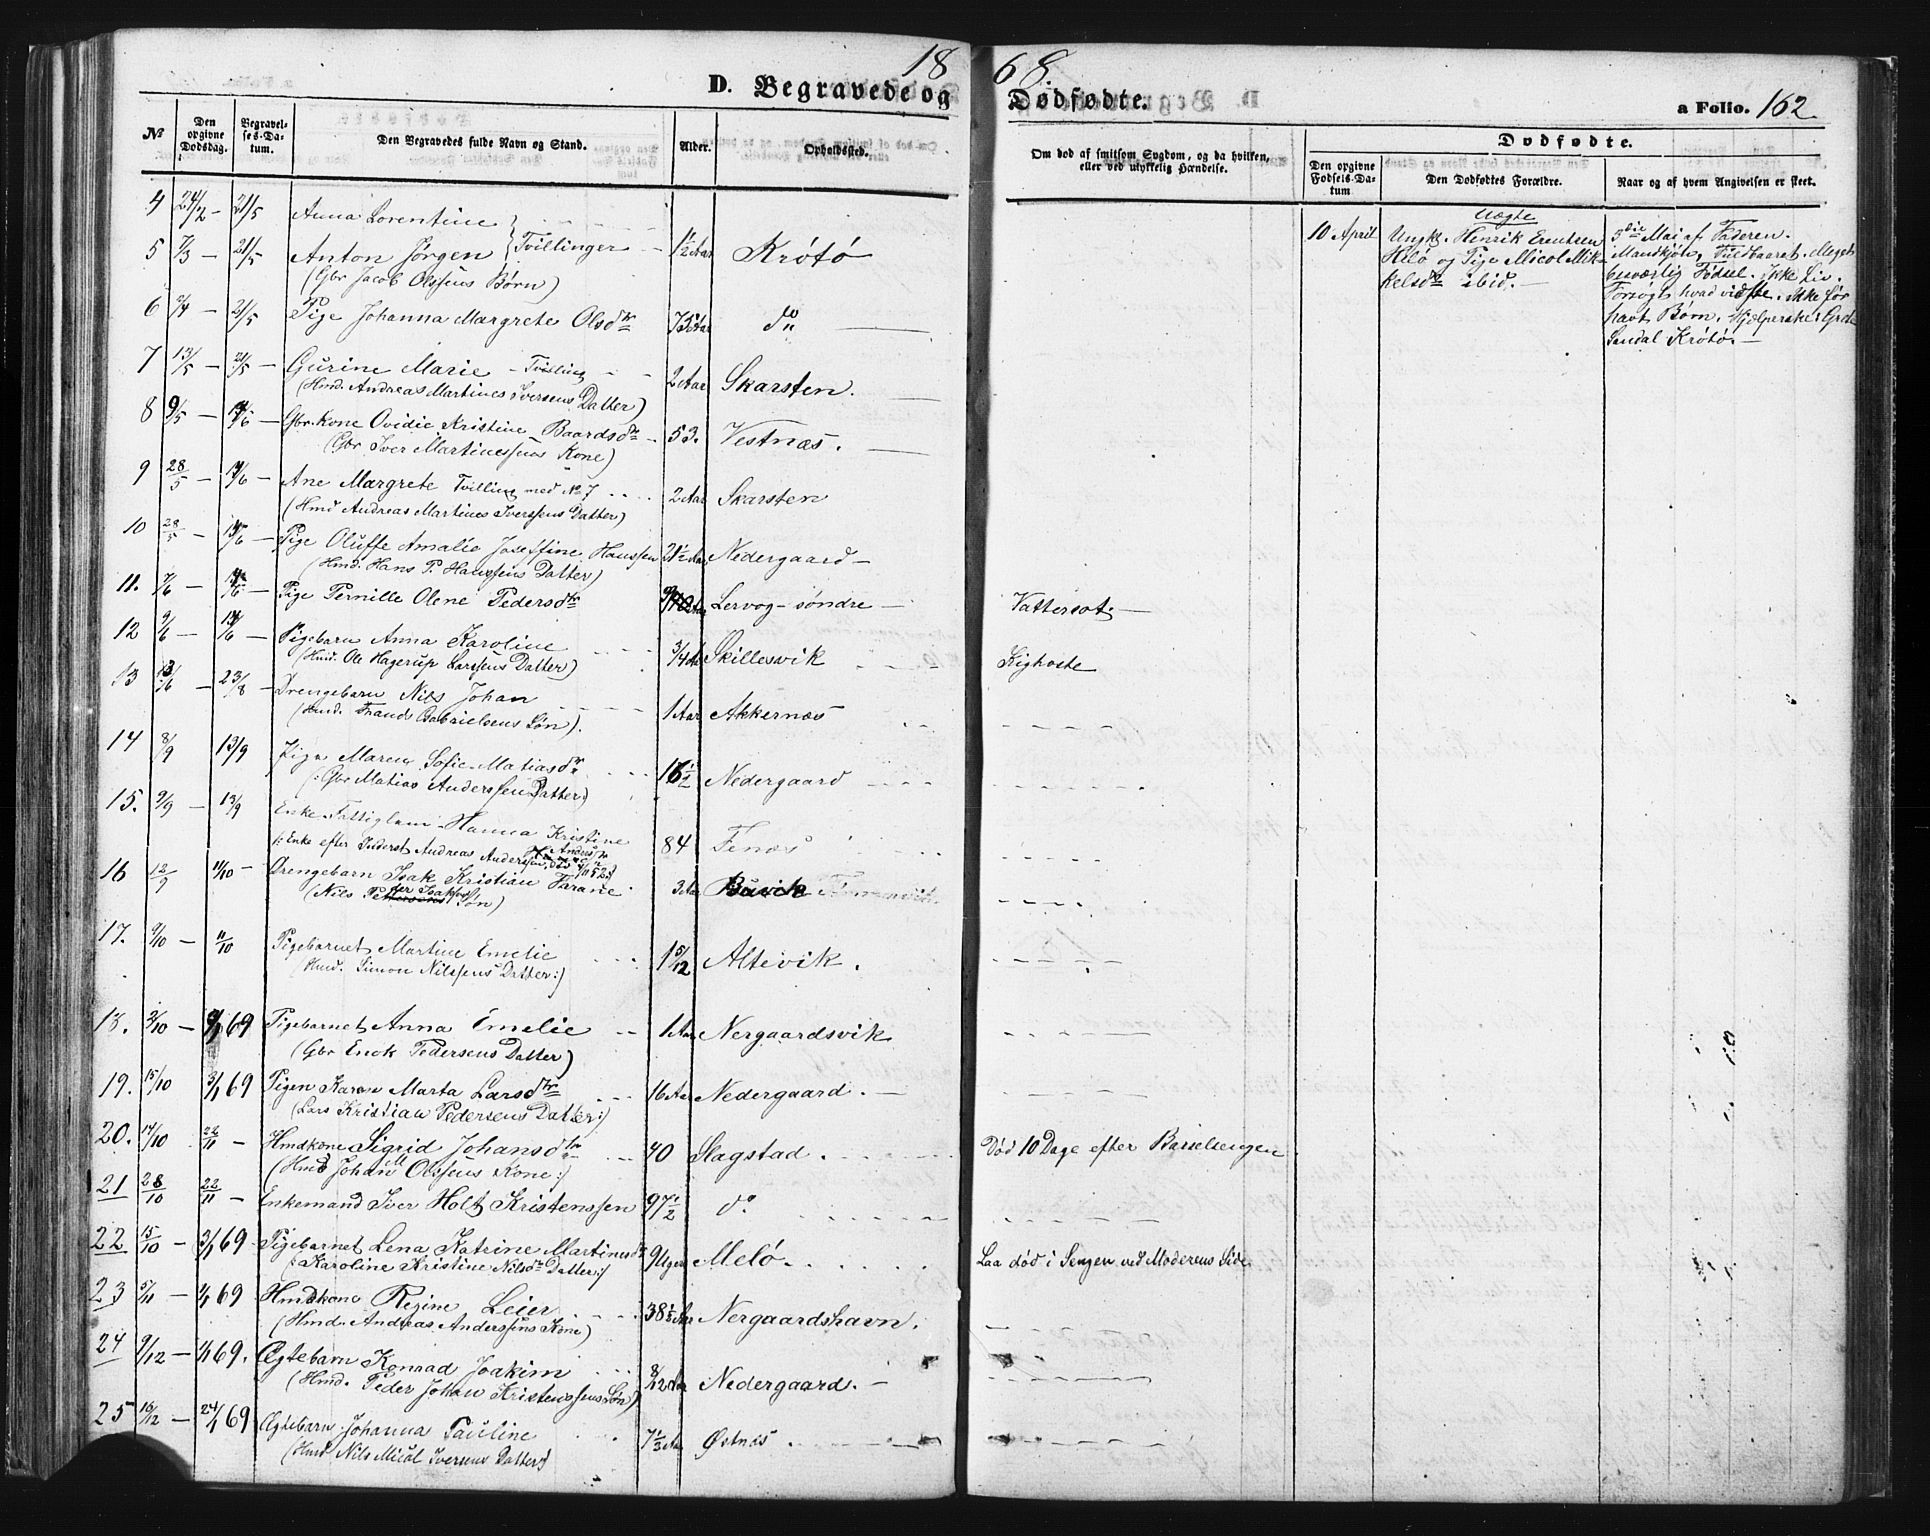 18 68.
D. Begravede og Dødfødte.
a Folio. 162.
No
Den opgivne Dødsdag.
Begravelses-Datum.
Den Begravedes fulde Navn og Stand.
Alder.
Opholdssted.
Om død af smitsom Sygdom, og da hvilken, eller ved ulykkelig Hændelse.
Dødfødte.
Den opgivne Fødsels-Datum
Den Dødfødtes Forældre.
Naar og af hvem Angivelsen er skeet.
4 24/2 - 21/5 Anna Lorentine
5 7/3 - 21/5 Anton Jørgen } Tvillinger 1½ Aar Krøtø
(Gbr Jacob Olssens Børn)
6 2/4 - 21/5 Pige Johanna Margrete Olsdtr 75 Aar do
7 13/5 - 21/5 Gurine Marie - Tvilling - 2 Aar Skarsten.
(Hmd. Andreas Martines Iversens Datter)
8 9/5 - 14/6 Gbr. Kone Ovidie Kristine Baardsdtr 53. Vestnæs.
(Gbr Iver Martinessens Kone)
9 28/5 - 14/6 - Ane Margrete Tvilling med No 7 2 Aar Skarsten
(Hmd Andreas Martines Iverssens Datter)
10 28/5 - 14/6 - Pige Oluffe Amalie Joseffine Hanssen 21½ Aar Nedergaard -
(Hmd. Hans P. Hanssens Datter)
11. 7/6 - 14/6 - Pige Pernille Olene Pedersdtr Lervog - søndre - Vattersot. -
12 9/6 - 14/6 - Pigebarn Anna Karoline 3/4 Aar Skillesvik Kighoste
(Hmd. Ole Hagerup Larssens Datter)
13 13/6 - 23/8 - Drengebarn Nils Johan 1 Aar Akkernæs
(Hmd. Trand Gabrielsens Søn).
14 8/9 13/9 Pige Maren Sofie Matiasdtr 16½ Nedergaard
(: Gbr Matias Anderssens Datter:)
15. 9/9 - 13/9 Enke Fattiglem Hanna Kristine Andersdtr 84 Fenæs
(: Enke efter Inderst Andreas Anderssen,
16 12/9 11/10 - Drengebarn Isak Kristian Farane 3 Aar Buvik
(Nils Søn)
17. 9/10 - 11/10 Pigebarnet Martine Emelie 1 5/12 Altevik.
(Hmd. Simon Nilssens Datter:)
18. 2/10 - 69 Pigebarnet Anna Emelie 1 Aar Nergaardsvik
(Gbr Enok Pedersens Datter)
19. 15/10 3/1 69 Pigen Karen Marta Larsdtr 16 Aar Nedergaard. -
(Lars Kristian Pedersens Datter:)
20. 17/10 22/11 - Hmdkone Sigrid Johansdtr 40 Slagstad. Død 10 Dage efter Barselsengen
(Hmd Johan Olssens Kone:)
21 28/10 22/11 - Enkemand Iver Holt Kristenssen 97½ do
22 15/10 - 3/1 69 - Pigebarnet Lena Katrine Martinusdtr 9 Uger Melø. Laa død i Sengen ved Moderens Side
(: Karoline Kristine Nilsdtr Datter:)
23 5/11 - 1/1 69 Hmdkone Regine Leier 38½ Aar Nergaardshavn.
(Hmd. Andreas Anderssens Kone)
24 9/12 - 1/1 69. Ægtebarn Konrad Joakim 8/12 Aar Nedergaard. -
(Hmd. Peder Johan Kristenssens Søn)
25 16/12 - 24/1 69 Ægtebarn Johanna Pauline 7½ Aar Østnæs.
(Hmd Nils Micol Iversens Datter)
10 April
Uægte
Ungk. Henrik Erentsen
Helø og Pige Micol Mik-
kelsdtr ibid. -
5die Mai af Faderen.
Mandkjøn, Fuldbaaret. Meget
besværlig Fødsel. ikke Liv.
Forsøgt hvad vidste. ikke før
havt Børn. Hjelperske: Grete
Sandal Krøtø. -